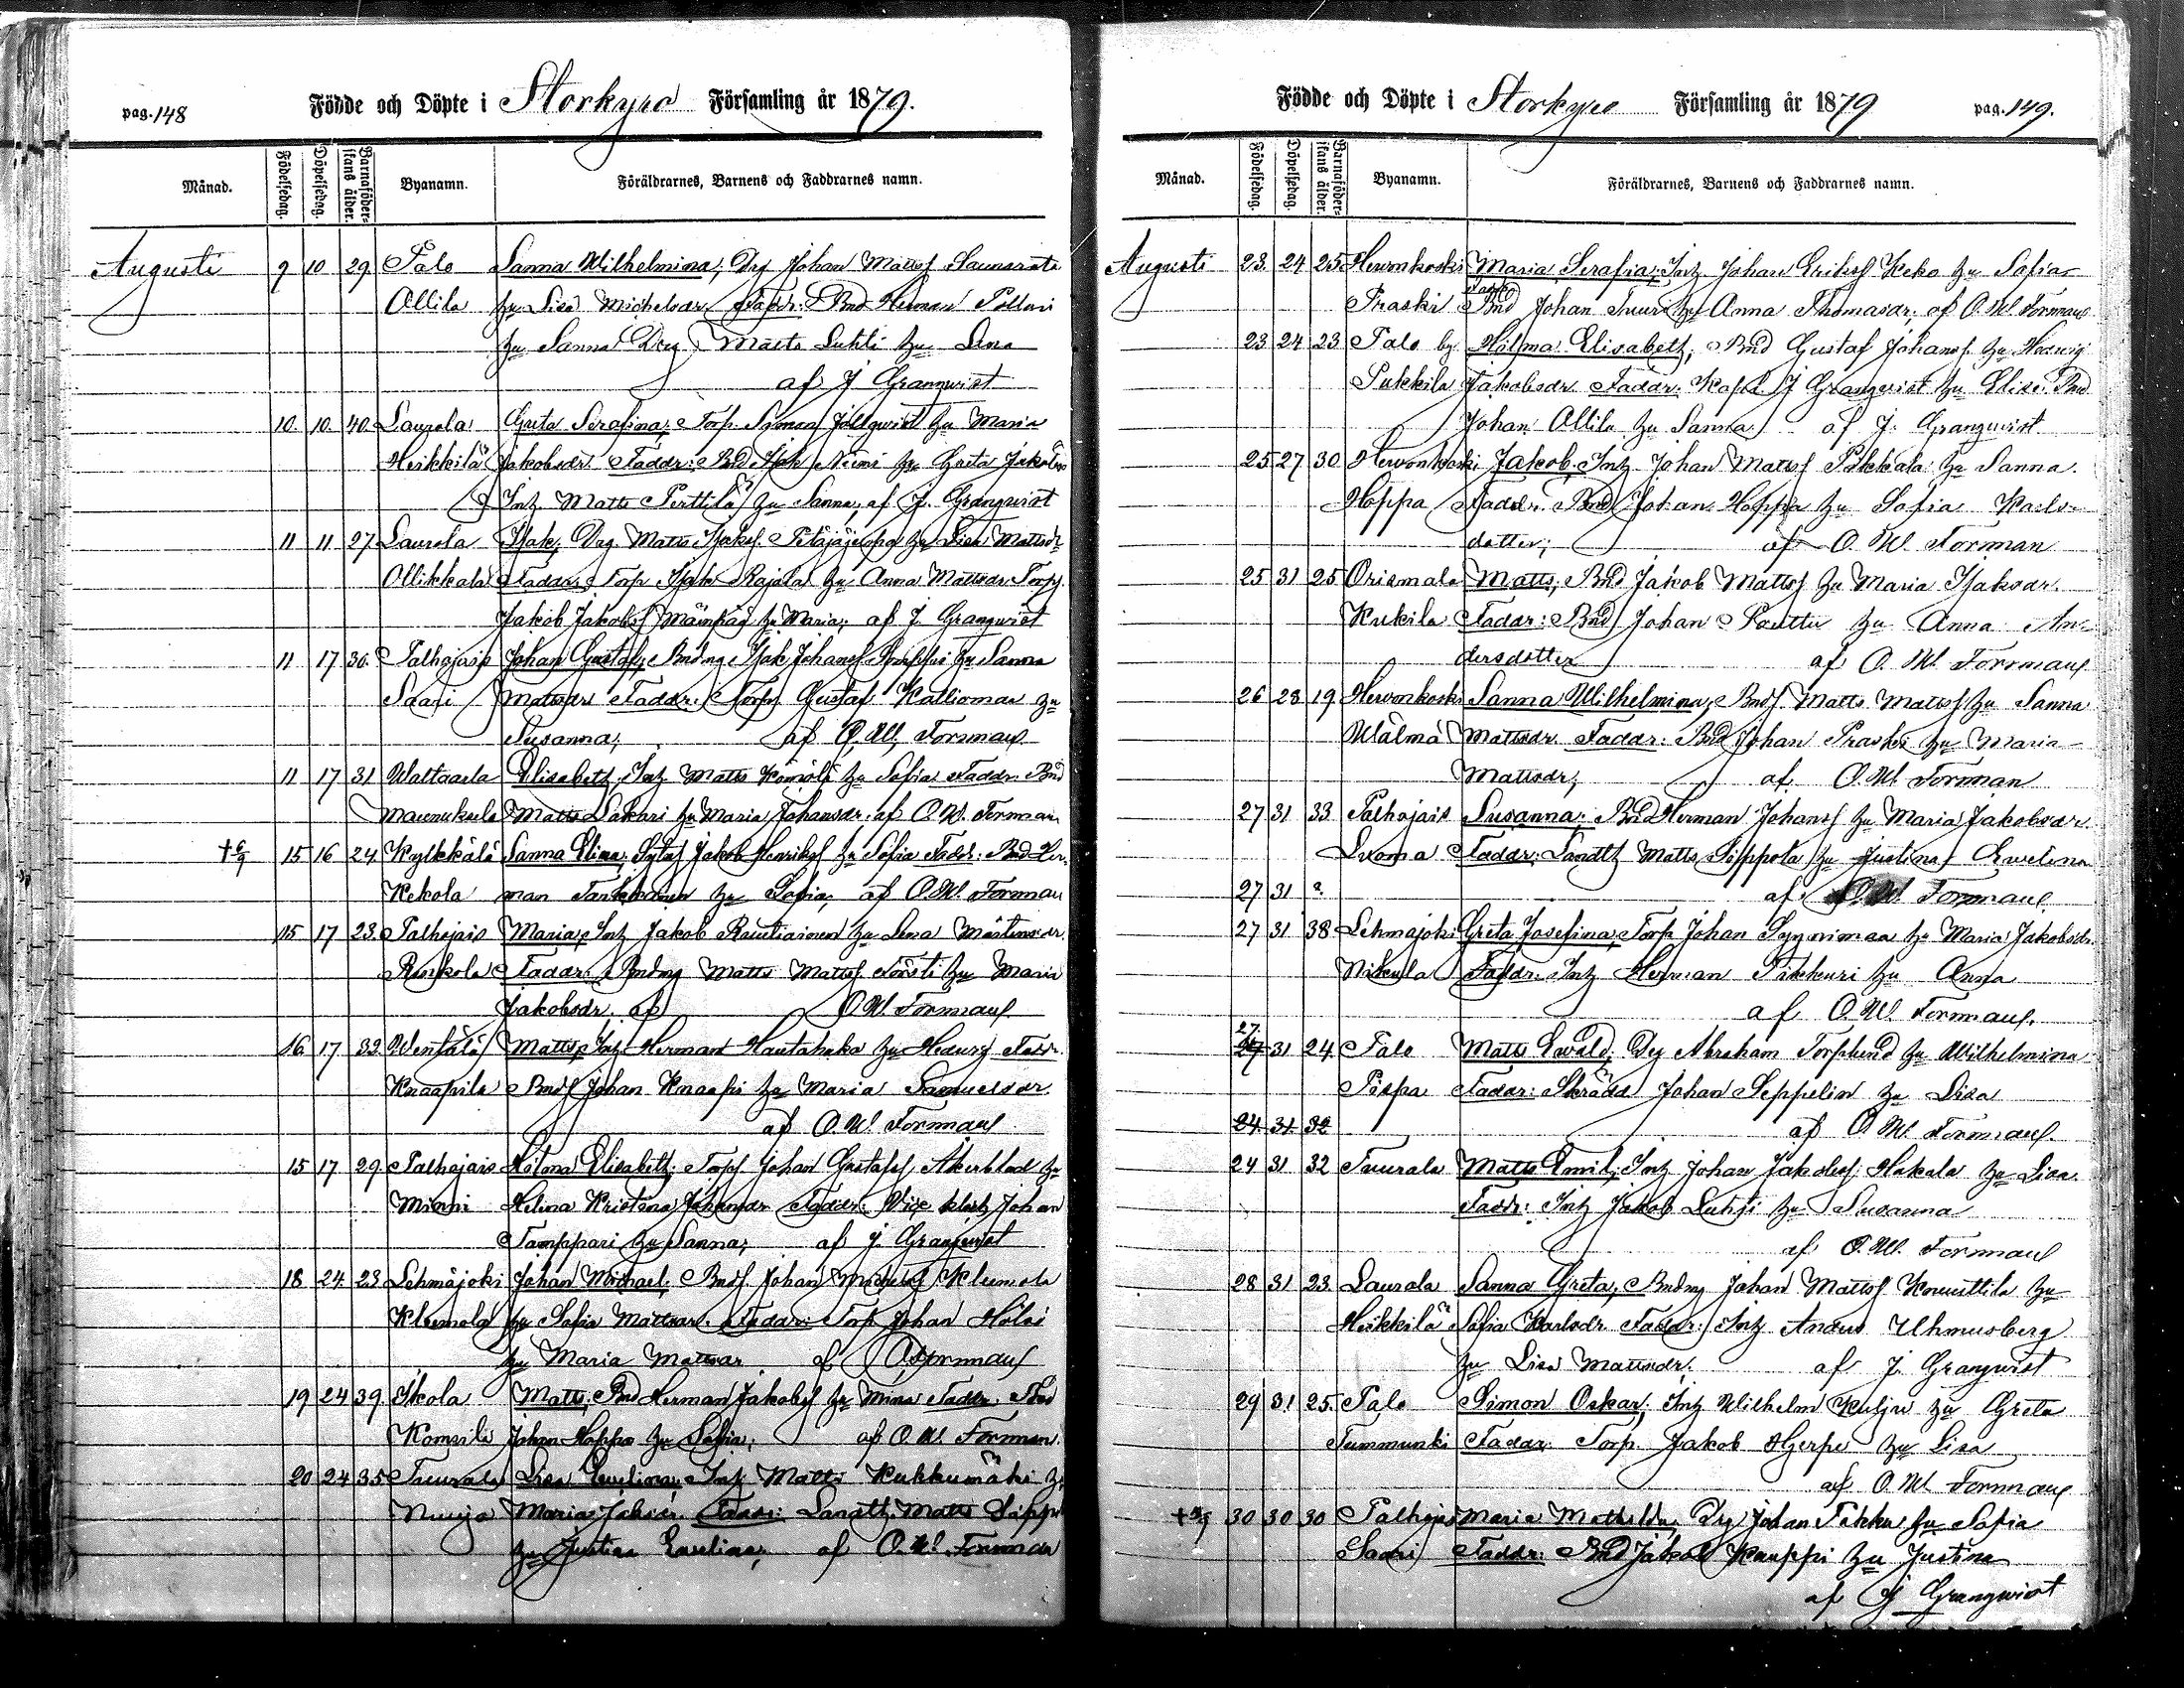 pag. 148
Födde och Döpte i Storkyro Församling år 1879.
Månad. Födelsedag. Döpelsedag. Barnaföderskans ålder. Byanamn. Föräldrarnes, Barnens och Faddrarnes namn.
Augusti 9 10 29 Palo Sanna Wilhelmina; Drg Johan Mattsf
Ollila hu Lisa Michelsdr Faddr: Bnd Herman Pollari
hu Sanna Drg Matts Luhti hu Lena
af J Granqwist
10. 10. 40. Laurola Greta Serafina; Torp. Simon Jällqwist hu Maria
Heikkilä Jakobsdr Faddr: Bnd Isak Niemi hu Greta Jakobs
Inh Matts Perttilä hu Sanna, af J. Granqwist
11 11 27 Laurola Isak; Drg Matts Isaksf. hu Lisa Mattsdr
Ollikkala Faddr: Torp Isak Rajala hu Anna Mattsdr Torp.
Jakob Jakobsf Mäenpää hu Maria; af J. Granqwist
11 17 30. Palhojais Johan Gustaf; Bndmg Isak Johansf hu Sanna
Saari Mattsdr Faddr: Torp Gustaf Kalliomaa hu
Susanna; af O. W. Forsman
11 17 31 Waltaala Elisabeth; Inh Matts hu Sofia Faddr: Bnd
Maunuksela Matts Sakari hu Maria Johansdr. af O. W. Forsman
† 6/9 15 16 24 Kylkkälä Sanna Elina; Jakob Henriksf hu Sofia Faddr: Bnd Her-
Kekola man hu Sofia, af O. W. Forsman
15 17 23. Palhojais Maria; Inh Jakob Rautiainen hu Lena Mårtensdr.
Runkola Faddr: Bndmg Matts Mattsf hu Maria
Jakobsdr. af O W. Forsman
16. 17 33. Wentälä Matts; Inh Herman Hautahaka hu Hedwig Faddr.
Knaapila Bndf Johan Knaapi hu Maria Samuelsdr.
af O. W. Forsman
15 17 29 Palhojais Elisabeth; Torp Johan Gustafsf Åkerblad hu
Minni Helena Kristina Johansdr Faddr: Vice Johan
Tamppari hu Sanna; af J. Granqwist
18 24. 23 Lehmäjoki Johan Michael; Bndf. Johan Michelsf Klemola
Klemola hu Sofia Mattsdr. Faddr: Torp Johan
hu Maria Mattsdr af O Forsman
19 24 39. Ikola Matts, Bnd Herman Jakobsf hu Mina Faddr: Bnd
Komsila Johan Hoppa hu Sofia; af O. W. Forsman.
20 24 35 Tuurala Lisa Ewelina; Inh Matts Kukkumäki hu
Nuuja Maria Faddr: Landth Matts
hu Justina Ewelina; af O. W. Forsman
Födde och Döpte i Storkyro Församling år 1879
pag. 149.
Månad. Födelsedag. Döpelsedag. Barnaföderskans ålder. Byanamn. Föräldrarnes, Barnens och Faddrarnes namn.
Augusti 23. 24 25 Herwonkoski Maria Serafia; Inh Johan Eriksf Keko hu Sofia
Praski Faddr Bnd Johan Tuuri hu Anna Thomasdr; af O. W. Forsman
23 24 23 Palo by Hilma Elisabeth; Bnd Gustaf Johansf. hu Hedwig
Pukkila Jakobsdr Faddr: Kapel. J Granqwist hu Elise Bnd
Johan Ollila hu Sanna af J. Granqwist
25 27 30 Herwonkoski Jakob; Inh Johan Mattsf Pukkala hu Sanna.
Hoppa Faddr. Bnd Johan Hoppa hu Sofia Karls-
dotter; af O. W. Forsman
25 31 25 Orismala Matts, Bnd Jakob Mattsf hu Maria Isaksdr.
Kukila Faddr: Bnd Johan Pouttu hu Anna An-
dersdotter af O. W. Forsman
26 28 19 Herwonkoski Sanna Wilhelmina; Bndf. Matts Mattsf hu Sanna
Wälmä Mattsdr Faddr: Bnd Johan Praski hu Maria
Mattsdr; af O. W. Forsman
27 31 33. Palhojais Susanna; Bnd Herman Johansf hu Maria Jakobsdr.
Luoma Faddr: Landth Matts hu Justina Ewelina
27 31 ? af O. W. Forsman
27 31 38 Lehmajoki Greta Josefina; Torp Johan Synnimaa hu Maria Jakobsdr.
Nikula Faddr: Inh Herman Pikkuri hu Anna
af O. W. Forsman.
27. 27 31 24 Palo Matts Ewald; Drg Abraham Torplund hu Wilhelmina
Pispa Faddr: Skrädd Johan Seppelin hu Lisa
24. 31. 32 af O W. Forsman.
24 31 32 Tuurala Matts Emil; Inh Johan Jakobsf Hakala hu Lisa.
Faddr: Inh Jakob Luhti hu Susanna
af O. W. Forsman
28 31 23. Laurola Sanna Greta, Bndmg Johan Mattsf hu
Heikkilä Sofia Karlsdr Faddr: Inh Anders
hu Lisa Mattsdr. af J. Granqwist
29 31 25. Palo Simon Oskar; Inh Wilhelm Kulju hu Greta
Tummunki Faddr. Torp. Jakob Hjerpe hu Lisa
af O. W. Forsman
† 30 30 30 Palhojais Maria Mathilda; Drg Johan hu Sofia
Saari Faddr: Bnd Jakob Kauppi hu Justina
af J Granqwist